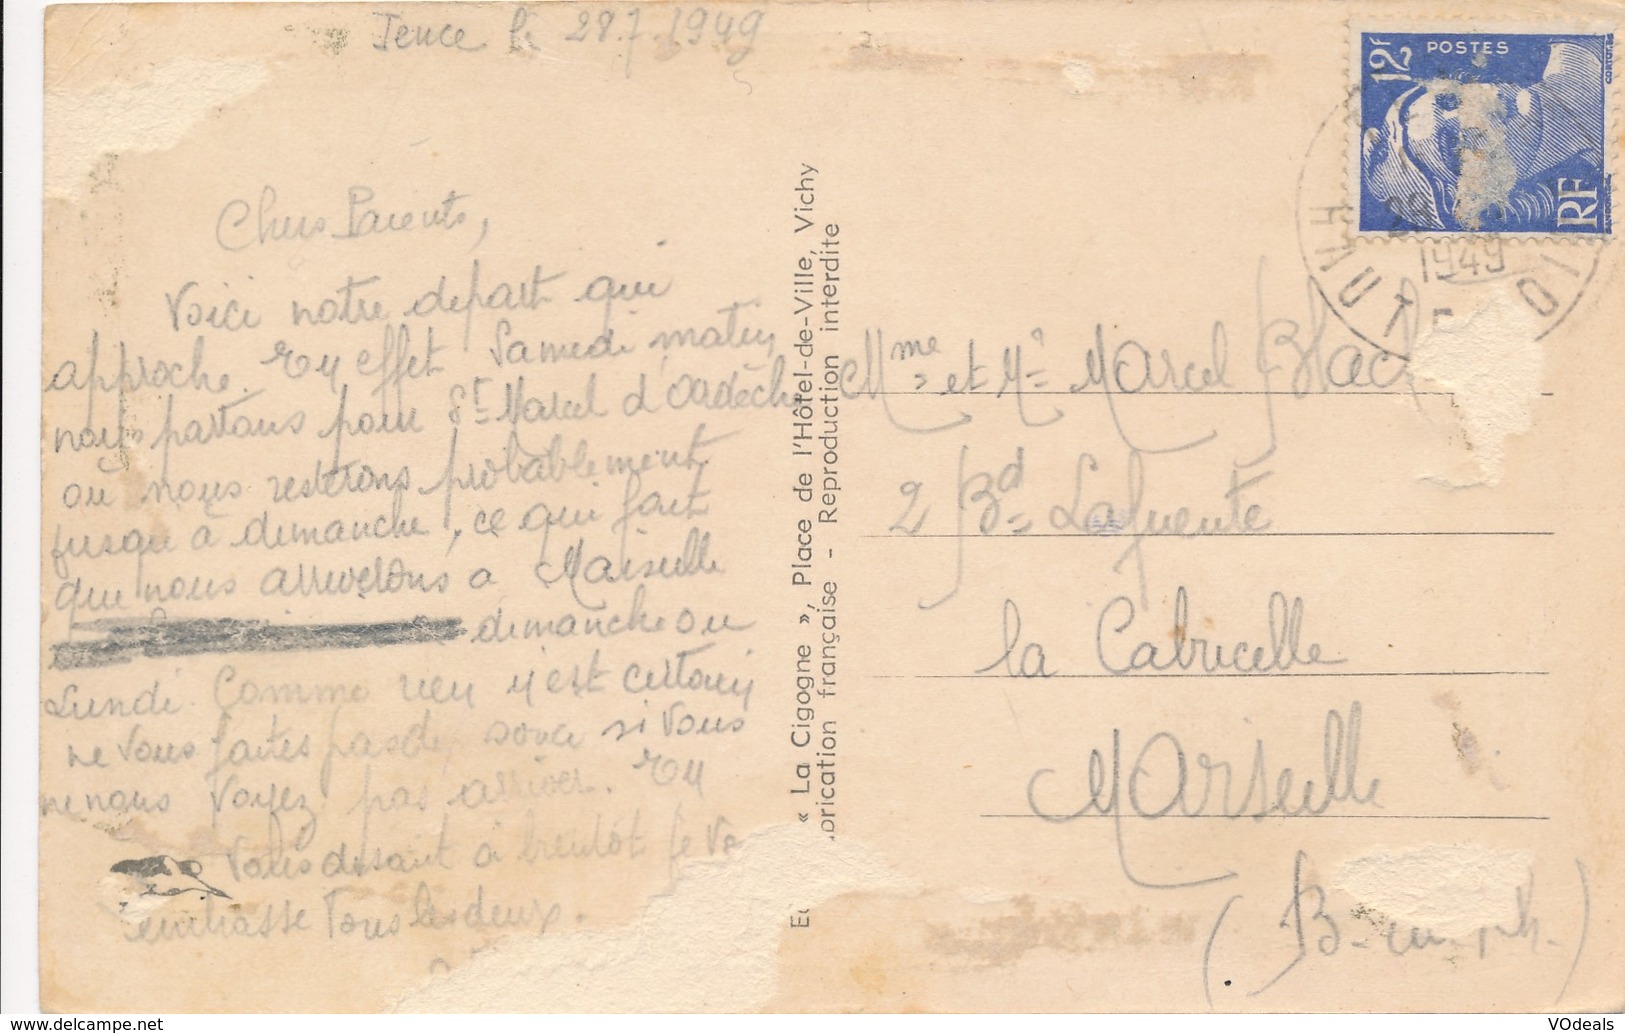 Tence le 28.7.1949
Chers Parents,
Voici notre depart qui
approche. En effet Samedi matin
nous partons pour St Marcel d'Ardèche
ou nous resterons probablement
jusqu'à dimanche, ce qui fait
que nous arriverons a Marseille
dimanche ou
Lundi. Comme rien n'est certain
ne vous faites pas de souci si vous
ne nous voyez pas arriver. En
vous disant à bientôt je vs
embrasse tous les deux.
« La Cigogne », Place de l'Hôtel-de-Ville, Vichy
brication française - Reproduction interdite
12F
POSTES
RF
28
1949
HAUTE
LOI
Mme et Mr Marcel Blac
2 Bd Lafuente
la Cabucelle
Marseille
(B- du Rh.)
VOdeals
www.delcampe.net